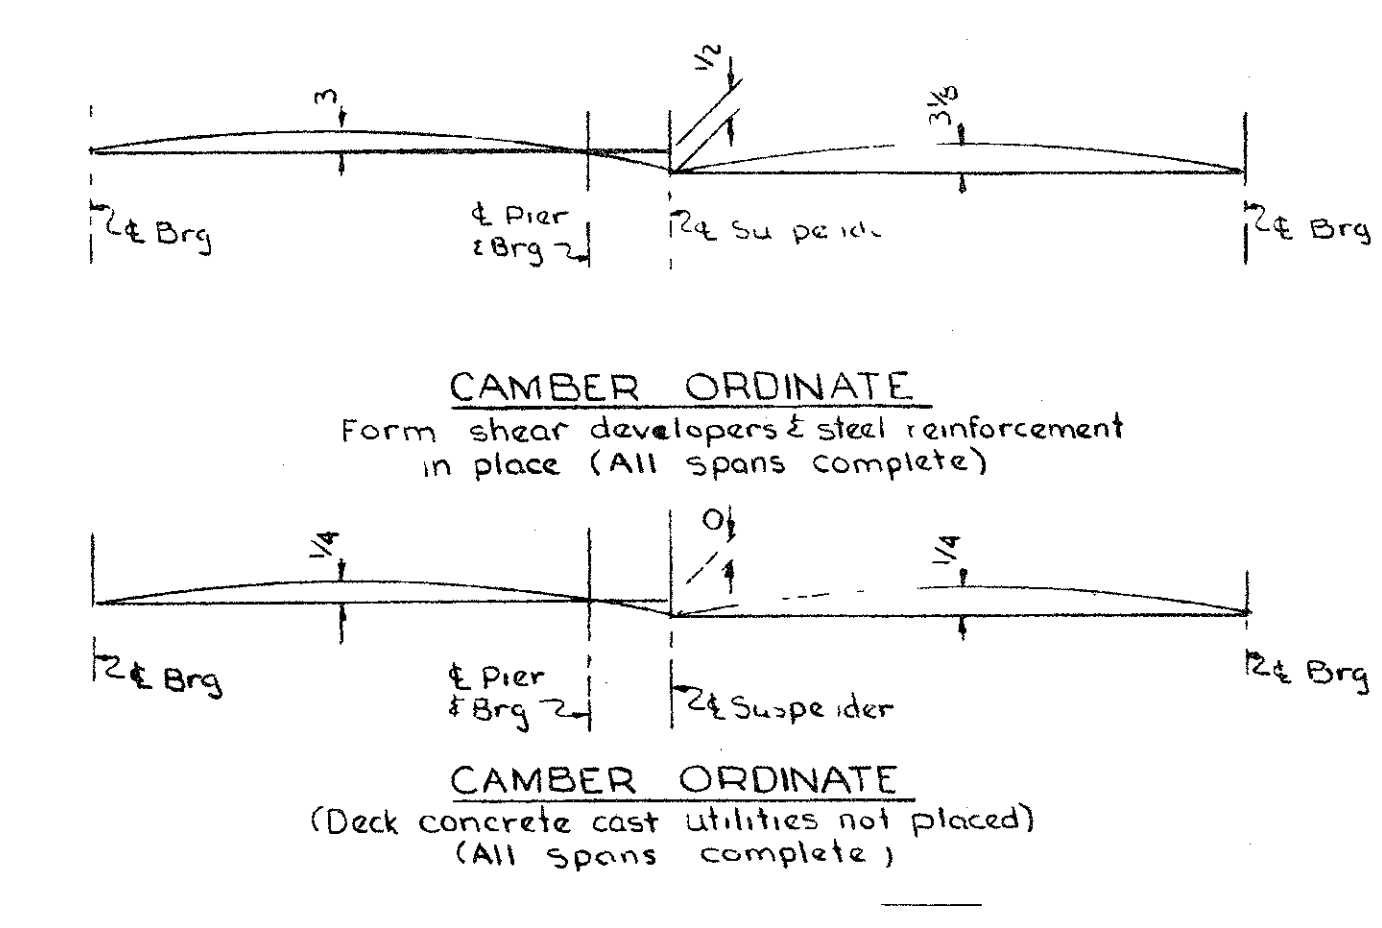 3
1/2
3 1/8
℄ Brg
℄ Pier
& Brg
℄
℄ Brg
CAMBER ORDINATE
Form shear developers & steel reinforcement
in place (All spans complete)
1/4
0
1/4
℄ Brg
℄ Pier
& Brg
℄ Suspender
℄ Brg
CAMBER ORDINATE
(Deck concrete cast utilities not placed)
(All spans complete)